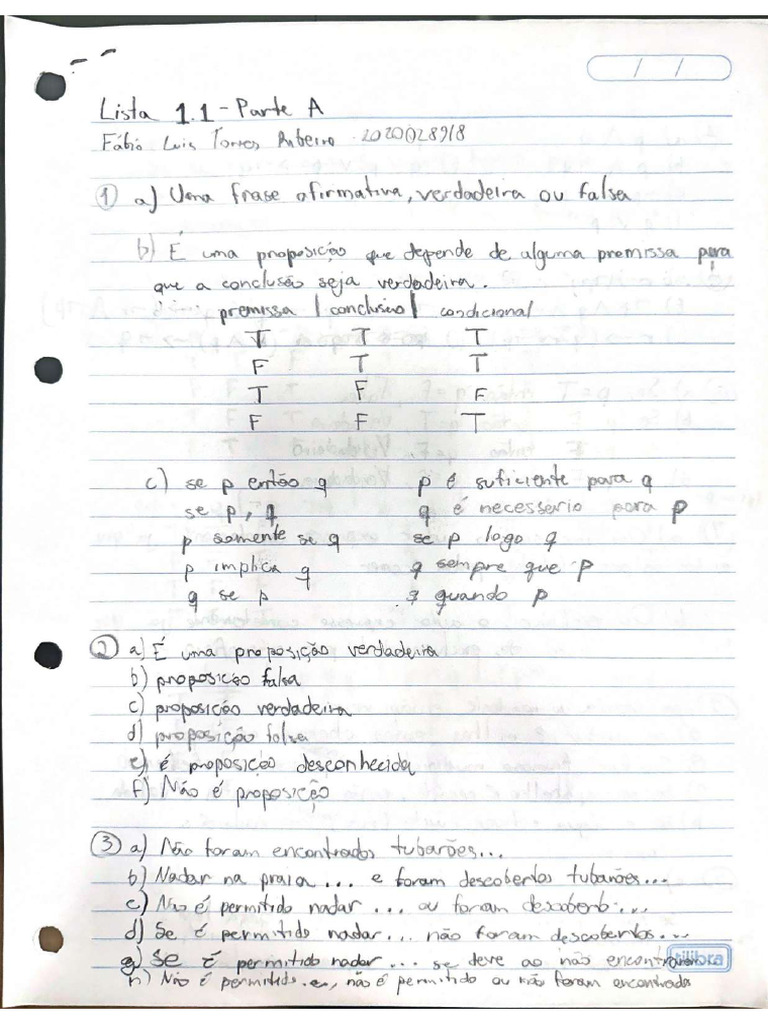 / /
Lista 1.1 - Parte A
Fábio Luis Torres Ribeiro 2020028918
① a) Uma frase afirmativa, verdadeira ou falsa
b) É uma proposição que depende de alguma premissa para
que a conclusão seja verdadeira.
premissa | conclusão | condicional
T T T
F T T
T F F
F F T
c) se p então q p é suficiente para q
se p, q q é necessario para p
p somente se q se p logo q
p implica q q sempre que p
q se p q quando p
② a) É uma proposição verdadeira
b) proposição falsa
c) proposição verdadeira
d) proposição falsa
e) é proposição desconhecida
f) Não é proposição
③ a) Não foram encontrados tubarões...
b) Nadar na praia ... e foram descobertos tubarões...
c) Não é permitido nadar ... ou foram descoberto...
d) Se é permitido nadar... não foram descobertos...
g) Se é permitido nadar... se deve ao não encontraram
h) Não é permitido ..., não é permitido ou não foram encontrada
tilibra